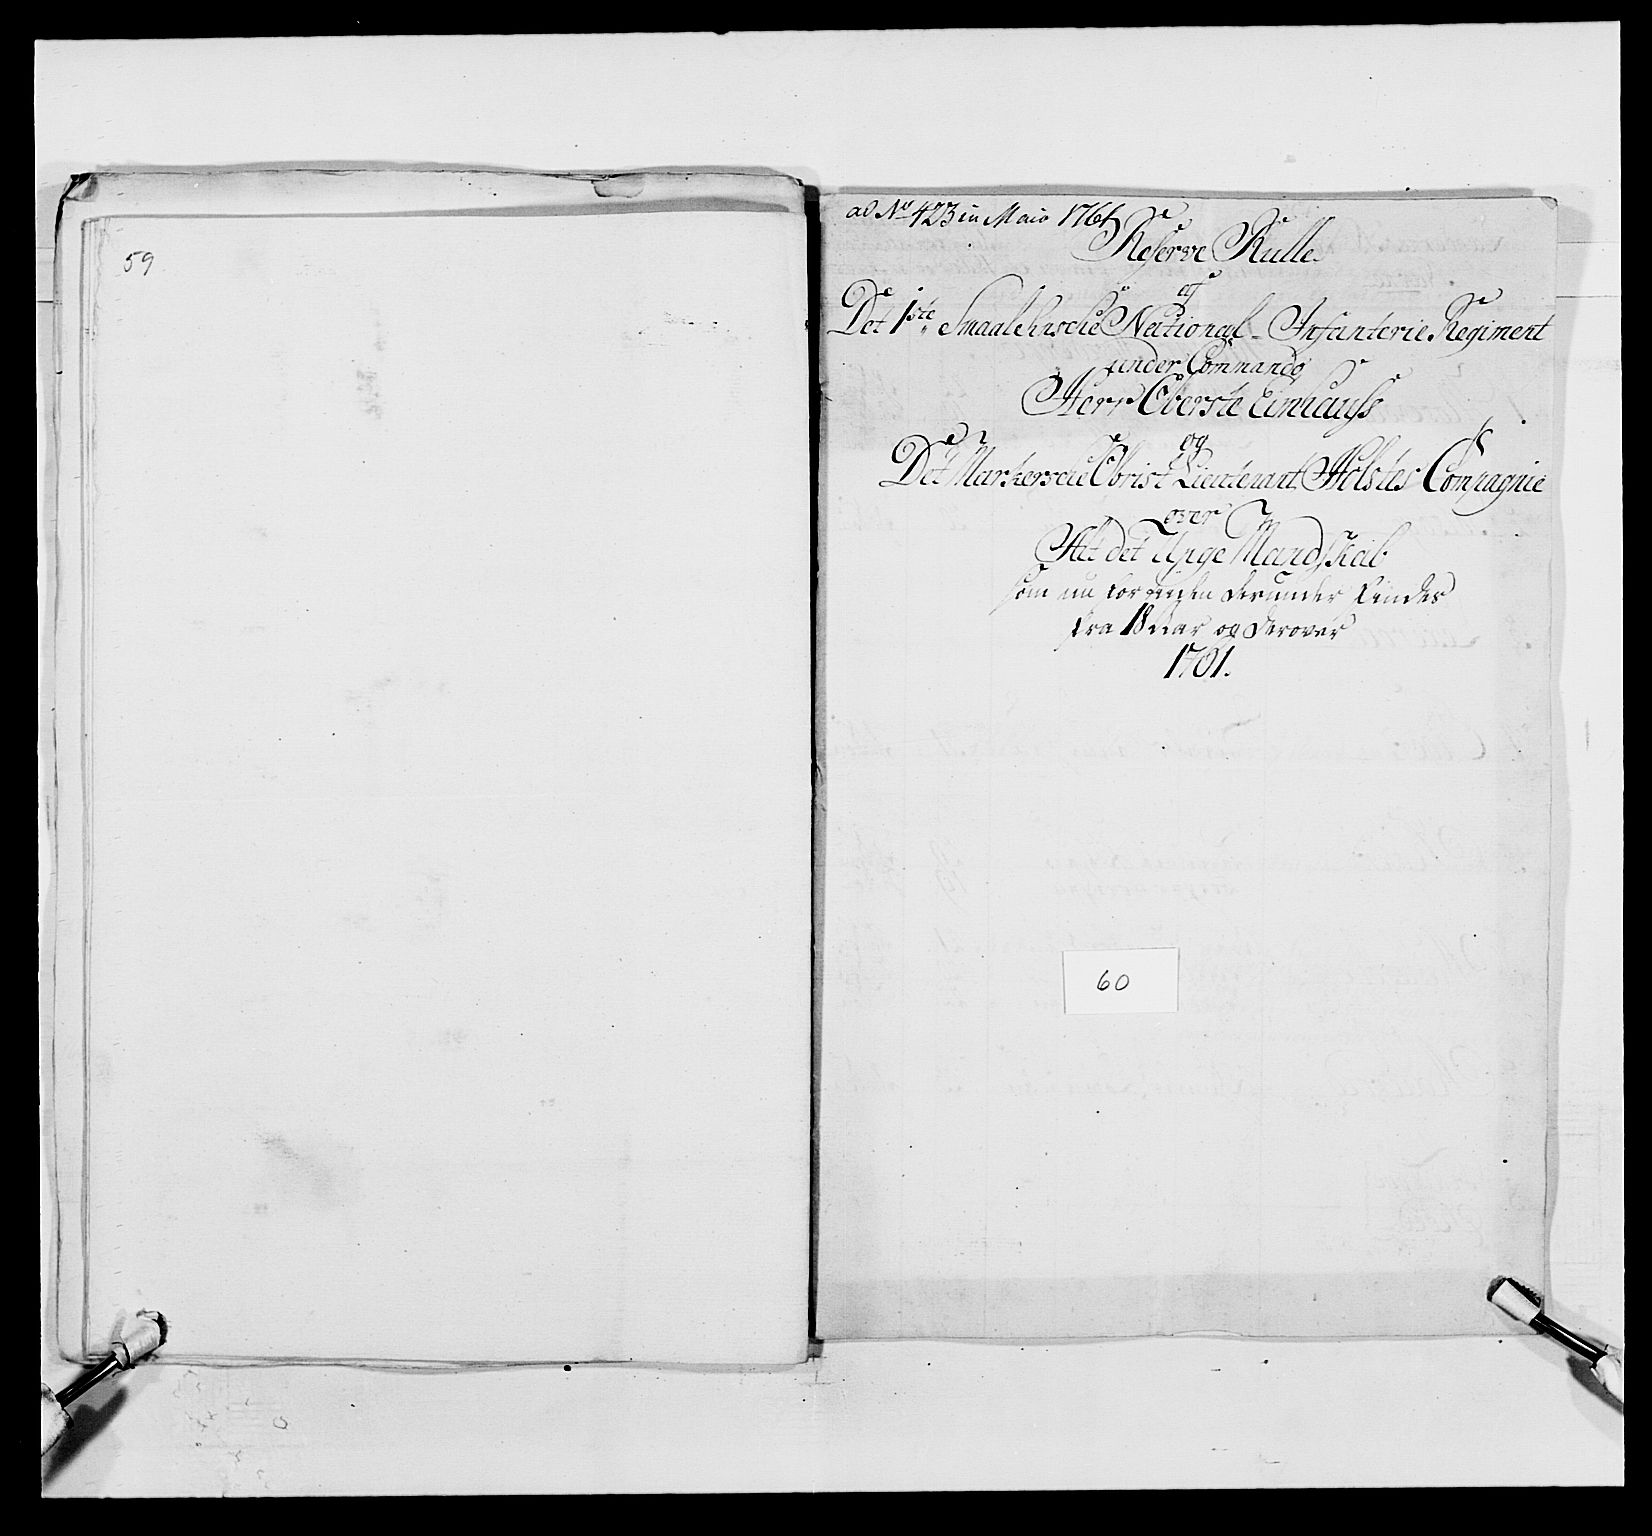 59
ad No 423 in Maio 1761
Reserve Rulle
af
Det 1ste Smaalehnsche National-Infanterie Regiment
under Commando
Herr Oberste Eimhauss
og
Det Markersche Obrist Lieutenant Holstes Compagnie
over
Alt det Unge Mandskab
som nu for tiden derunder findes
fra 18 Aar og derover
1761.
60